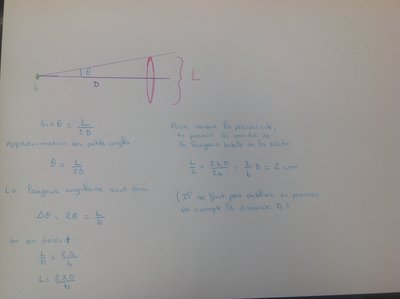 θ
D
L
sin θ = L/2D
Approximation des petits angles :
θ = L/2D
La largeur angulaire vaut donc :
Δθ = 2θ = L/D
on en déduit :
L/D = 2λ/b
L = 2λD/b
Pour avoir la
tu prends la moitié de
la largeur totale de la tâche
L/2 = 2λD/2b = λ/b D = 2 cm
(Il ne faut pas oublier de prendre
en compte la distance D !